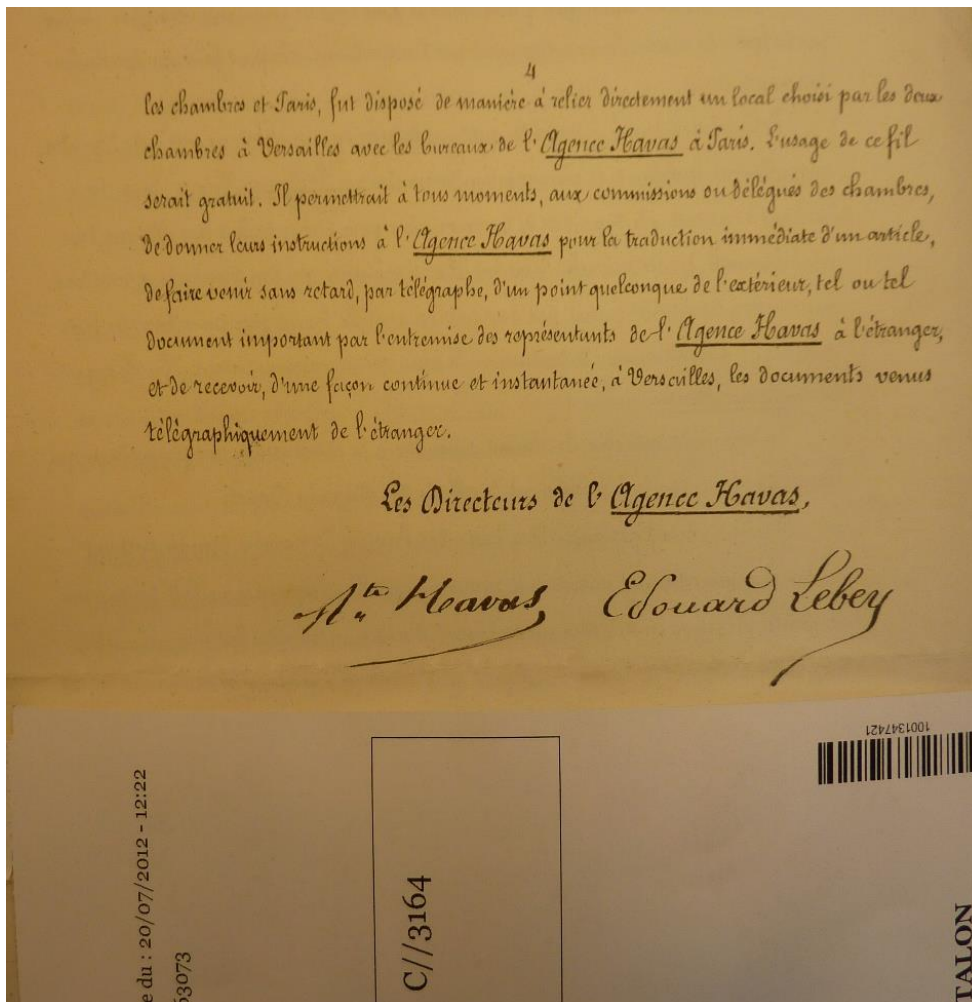 4
les chambres et Paris, fut disposé de manière à relier directement un local choisi par les deux
chambres à Versailles avec les bureaux de l'Agence Havas à Paris. L'usage de ce fil
serait gratuit. Il permettrait à tous moments, aux commissions ou délégués des chambres,
de donner leurs instructions à l'Agence Havas pour la traduction immédiate d'un article,
de faire venir sans retard, par télégraphe, d'un point quelconque de l'extérieur, tel ou tel
document important par l'entremise des représentants de l'Agence Havas à l'étranger,
et de recevoir, d'une façon continue et instantanée, à Versailles, les documents venus
télégraphiquement de l'étranger.
Les Directeurs de l'Agence Havas,
Ate Havas Edouard Lebey
1001347421
e du : 20/07/2012 - 12:22
63073
C//3164
TALON